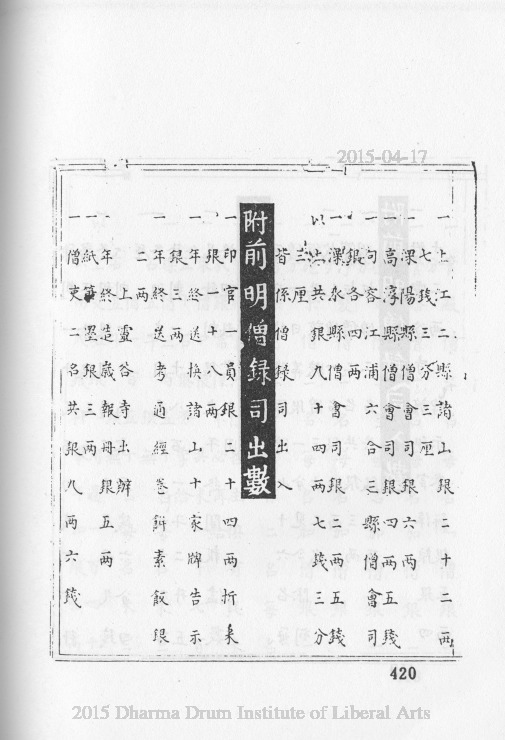 2015-04-17
一上江二縣諸山銀二十二兩
七錢三分三厘
一溧陽縣僧會司銀六兩
一高淳縣僧會司銀四兩五錢
一句容江浦六合三縣僧會司
銀各四兩
一溧水縣僧會司銀二兩五錢
以上共銀九十四兩七錢三分
三厘
皆係僧錄司出入
附前明僧錄司出數
一印官一員銀二十四兩折米
銀一十八兩
一年終送挨諸山十家牌告示
銀三兩
一年終送考通經卷餅素飯銀
二兩
一年終上靈谷寺出辦
一年終造歲報冊銀五兩
一紙筆墨銀三兩
一僧吏二名共銀八兩六錢
420
2015 Dharma Drum Institute of Liberal Arts